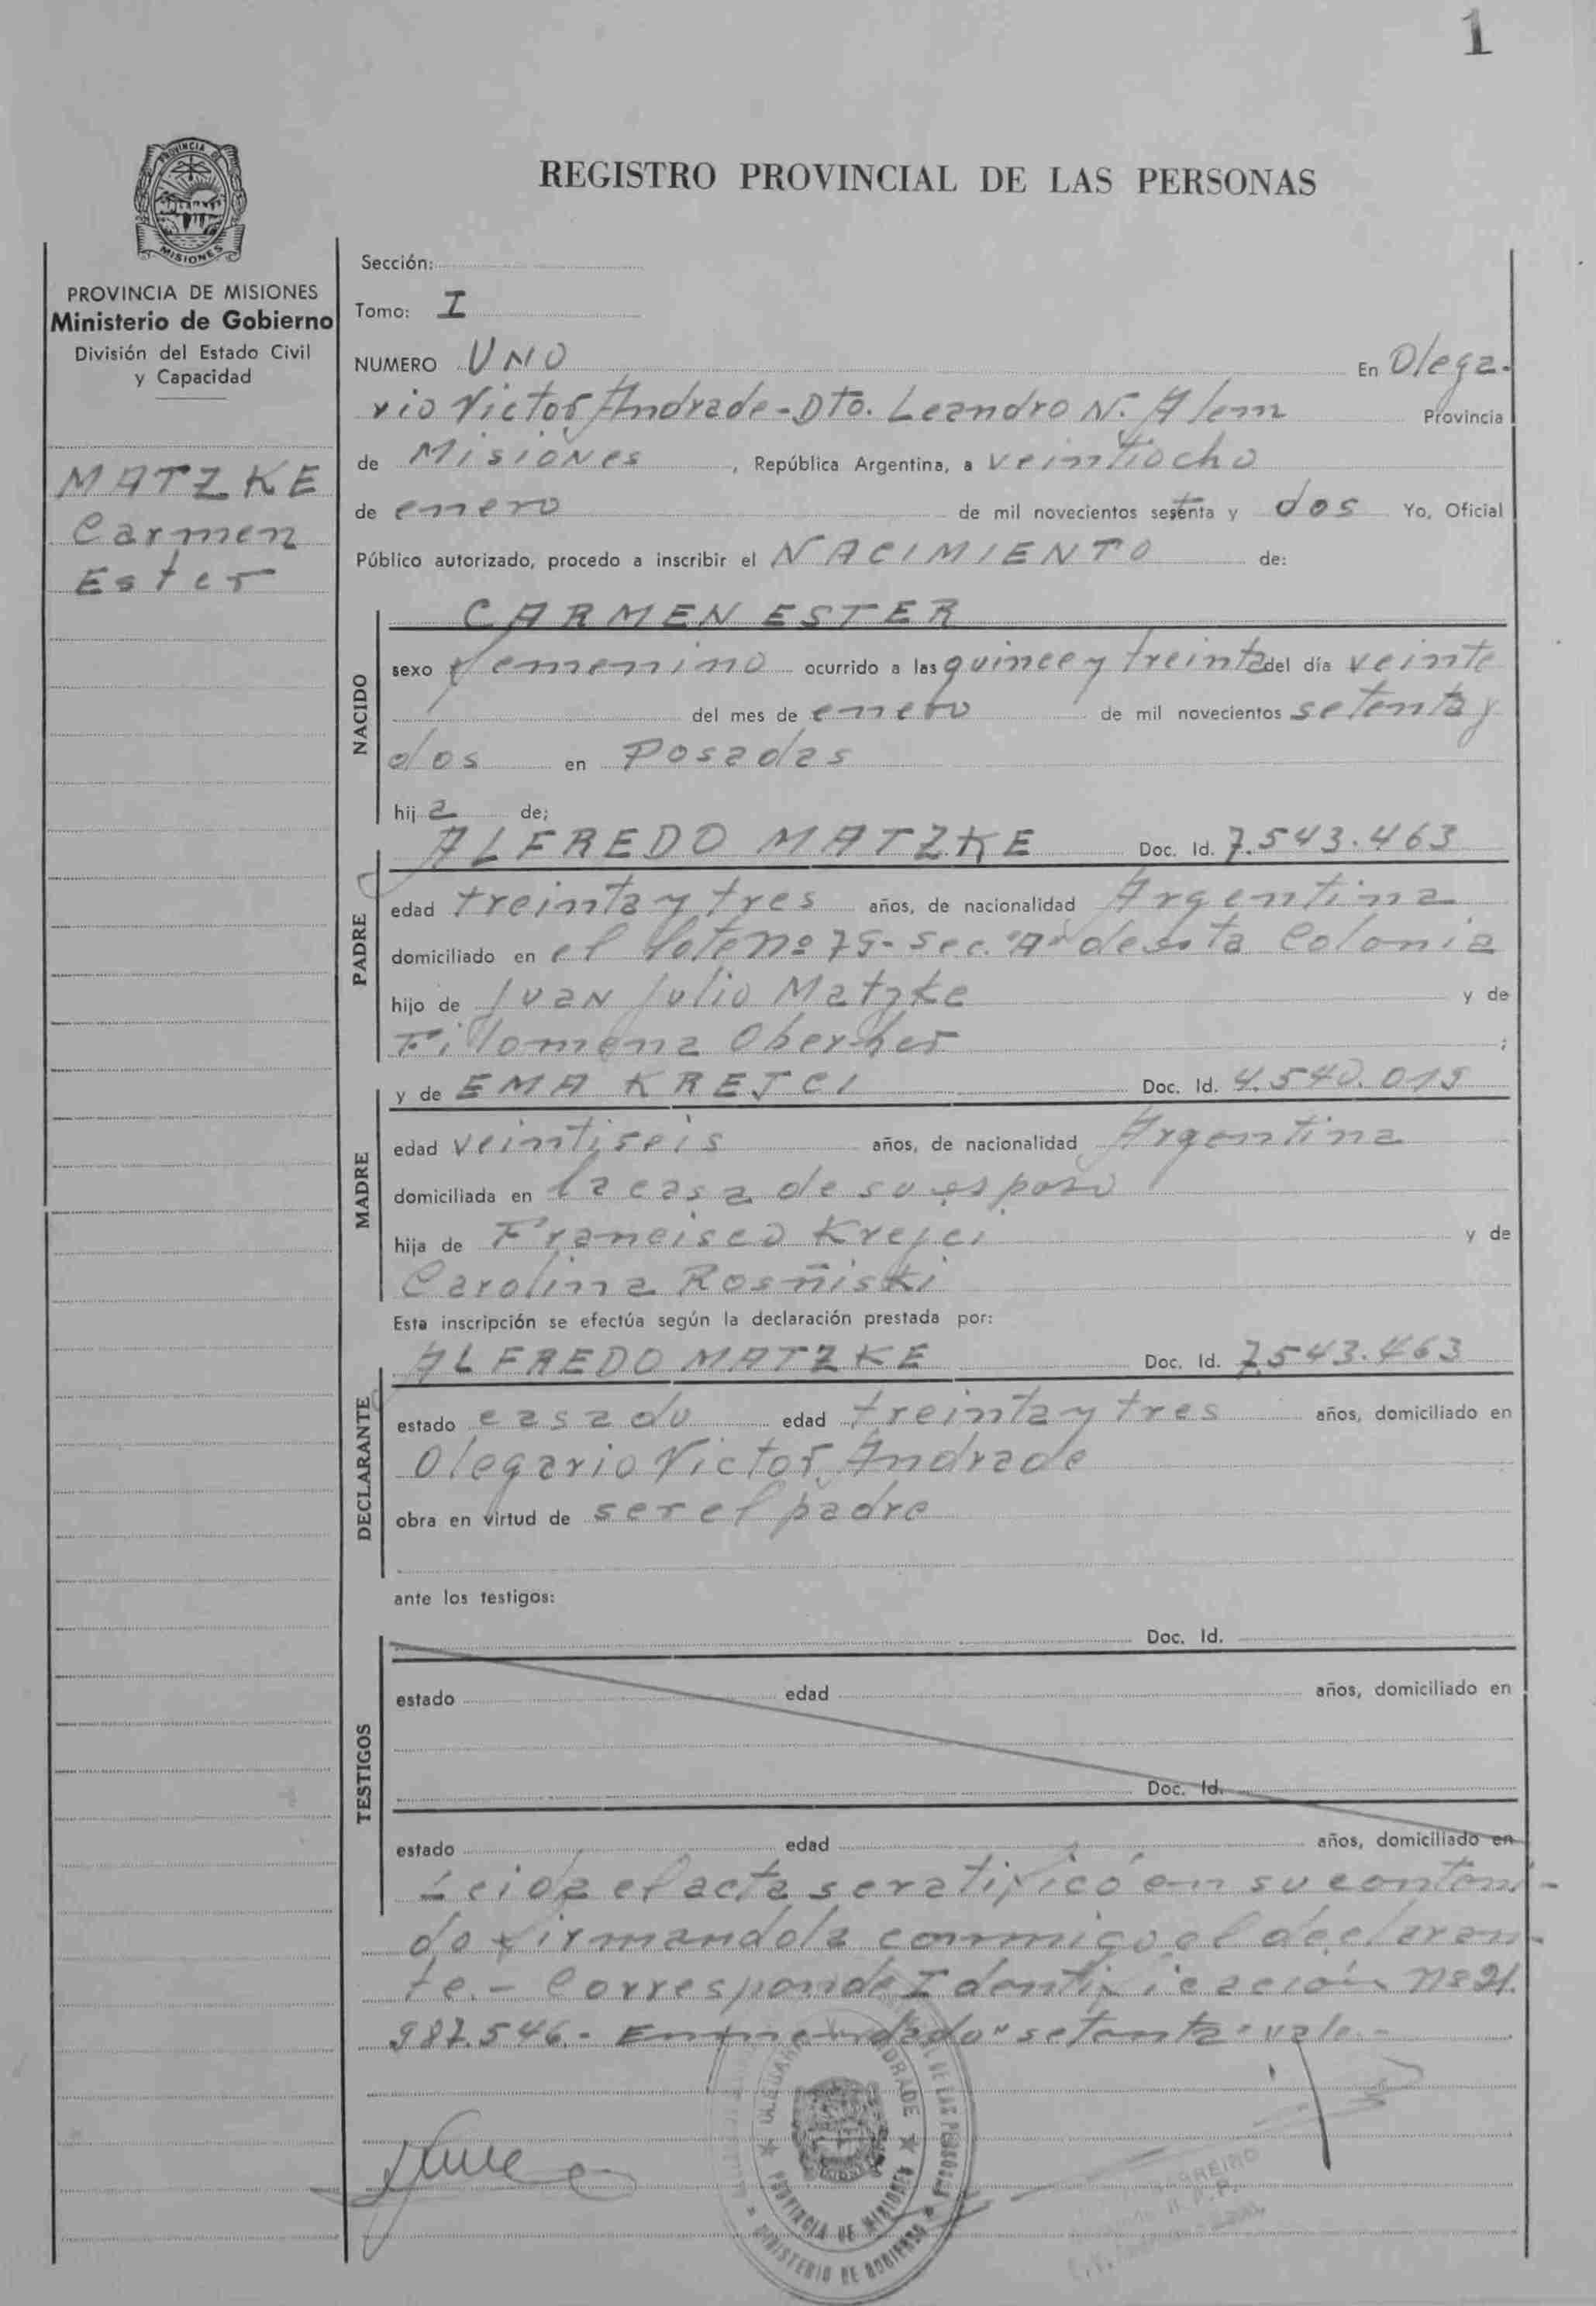 1
PROVINCIA DE
MISIONES
REGISTRO PROVINCIAL DE LAS PERSONAS
PROVINCIA DE MISIONES
Ministerio de Gobierno
División del Estado Civil
y Capacidad
MATZKE
Carmen
Ester
Sección:
Tomo: I
NUMERO UNO En Olega-
rio Victor Andrade - Dto. Leandro N. Alem Provincia
de Misiones, República Argentina, a veintiocho
de enero de mil novecientos setenta y dos Yo, Oficial
Público autorizado, procedo a inscribir el NACIMIENTO de:
NACIDO
CARMEN ESTER
sexo femenino ocurrido a las quince y treinta del día veinte
del mes de enero de mil novecientos setenta y
dos en Posadas
hija de;
PADRE
ALFREDO MATZKE Doc. Id. 7.543.463
edad treinta y tres años, de nacionalidad Argentina
domiciliado en el lote nº 75 - Sec. "A" de esta Colonia
hijo de Juan Julio Matzke y de
Filomena Oberher ;
MADRE
y de EMA KREJCI Doc. Id. 4.540.015
edad veintiseis años, de nacionalidad Argentina
domiciliada en la casa de su esposo
hija de Francisco Krejci y de
Carolina Rosñiski
Esta inscripción se efectúa según la declaración prestada por:
DECLARANTE
ALFREDO MATZKE Doc. Id. 7.543.463
estado casado edad treinta y tres años, domiciliado en
Olegario Victor Andrade
obra en virtud de ser el padre
ante los testigos:
TESTIGOS
Doc. Id.
estado edad años, domiciliado en
Doc. Id.
estado edad años, domiciliado en
Leida el acta se ratificó en su conteni-
do firmandola conmigo el declaran-
te. - Corresponde Identificación nº 21.
987.546. - Enmendado "setenta" vale. -
PROVINCIA DE MISIONES
MINISTERIO DE GOBIERNO